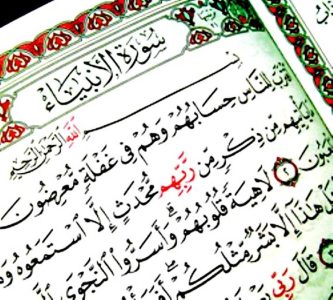 سورة الأنبياء
بسم الله الرحمن الرحيم
للناس حسابهم وهم في غفلة معرضون
يأتيهم من ذكر من ربهم محدث إلا استمعوه وهم
لاهية قلوبهم وأسروا النجوى
هل هذا إلا بشر مثلكم
قال ربي